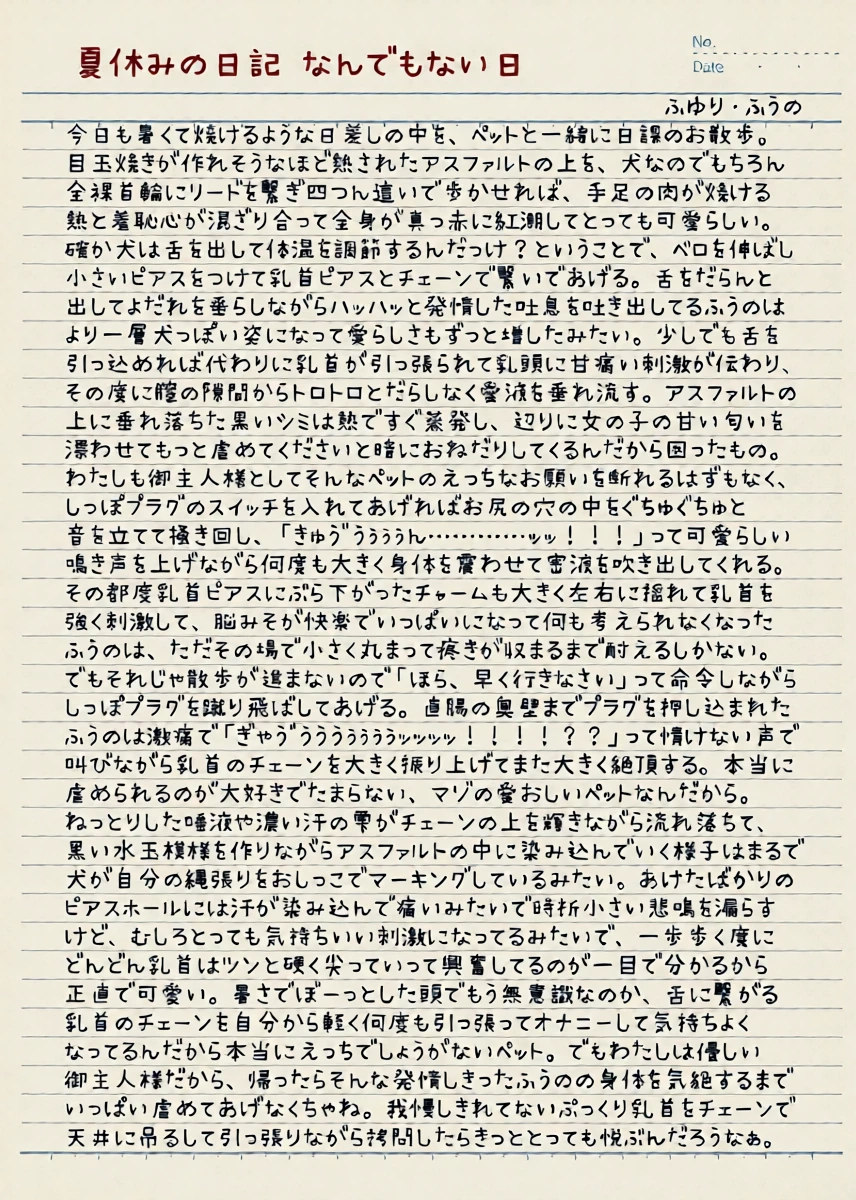 夏休みの日記 なんでもない日
No.
Date
ふゆり・ふうの
今日も暑くて焼けるような日差しの中を、ペットと一緒に日課のお散歩。
目玉焼きが作れそうなほど熱されたアスファルトの上を、犬なのでもちろん
全裸首輪にリードを繋ぎ四つん這いで歩かせれば、手足の肉が焼ける
熱と羞恥心が混ざり合って全身が真っ赤に紅潮してとっても可愛らしい。
確か犬は舌を出して体温を調節するんだっけ？ということで、ベロを伸ばし
小さいピアスをつけて乳首ピアスとチェーンで繋いであげる。舌をだらんと
出してよだれを垂らしながらハッハッと発情した吐息を吐き出してるふうのは
より一層犬っぽい姿になって愛らしさもずっと増したみたい。少しでも舌を
引っ込めれば代わりに乳首が引っ張られて乳頭に甘痛い刺激が伝わり、
その度に膣の隙間からトロトロとだらしなく愛液を垂れ流す。アスファルトの
上に垂れ落ちた黒いシミは熱ですぐ蒸発し、辺りに女の子の甘い匂いを
漂わせてもっと虐めてくださいと暗におねだりしてくるんだから困ったもの。
わたしも御主人様としてそんなペットのえっちなお願いを断れるはずもなく、
しっぽプラグのスイッチを入れてあげればお尻の穴の中をぐちゅぐちゅと
音を立てて掻き回し、「きゅう゛うぅぅぅん…………ッッ！！！」って可愛らしい
鳴き声を上げながら何度も大きく身体を震わせて蜜液を吹き出してくれる。
その都度乳首ピアスにぶら下がったチャームも大きく左右に揺れて乳首を
強く刺激して、脳みそが快楽でいっぱいになって何も考えられなくなった
ふうのは、ただその場で小さく丸まって疼きが収まるまで耐えるしかない。
でもそれじゃ散歩が進まないので「ほら、早く行きなさい」って命令しながら
しっぽプラグを蹴り飛ばしてあげる。直腸の奥壁までプラグを押し込まれた
ふうのは激痛で「ぎゃう゛うううぅぅぅぅッッッッ！！！！？？」って情けない声で
叫びながら乳首のチェーンを大きく振り上げてまた大きく絶頂する。本当に
虐められるのが大好きでたまらない、マゾの愛おしいペットなんだから。
ねっとりした唾液や濃い汗の雫がチェーンの上を輝きながら流れ落ちて、
黒い水玉模様を作りながらアスファルトの中に染み込んでいく様子はまるで
犬が自分の縄張りをおしっこでマーキングしているみたい。あけたばかりの
ピアスホールには汗が染み込んで痛いみたいで時折小さい悲鳴を漏らす
けど、むしろとっても気持ちいい刺激になってるみたいで、一歩歩く度に
どんどん乳首はツンと硬く尖っていって興奮してるのが一目で分かるから
正直で可愛い。暑さでぼーっとした頭でもう無意識なのか、舌に繋がる
乳首のチェーンを自分から軽く何度も引っ張ってオナニーして気持ちよく
なってるんだから本当にえっちでしょうがないペット。でもわたしは優しい
御主人様だから、帰ったらそんな発情しきったふうのの身体を気絶するまで
いっぱい虐めてあげなくちゃね。我慢しきれてないぷっくり乳首をチェーンで
天井に吊るして引っ張りながら拷問したらきっととっても悦ぶんだろうなぁ。